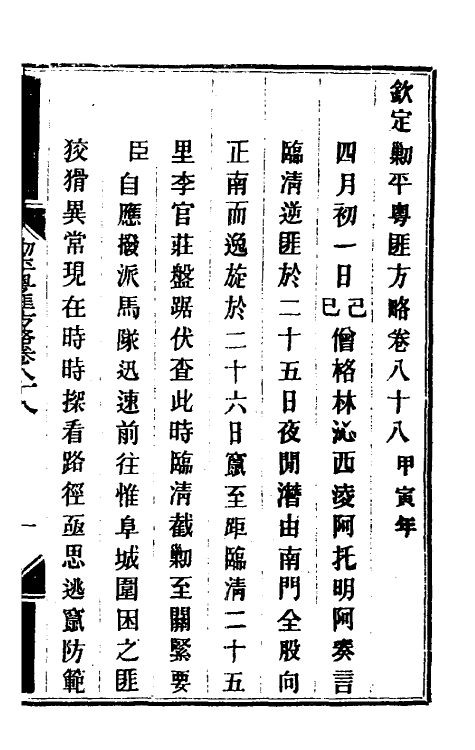 欽定勦平粵匪方略卷八十八 甲寅年
四月初一日己巳僧格林沁西淩阿托明阿奏言
臨清逆匪於二十五日夜閒潛由南門全股向
正南而逸旋於二十六日竄至距臨清二十五
里李官莊盤踞伏查此時臨清截勦至關緊要
臣自應撥派馬隊迅速前往惟阜城圍困之匪
狡猾異常現在時時探看路徑亟思逃竄防範
勦平粵匪方略卷八十八
一